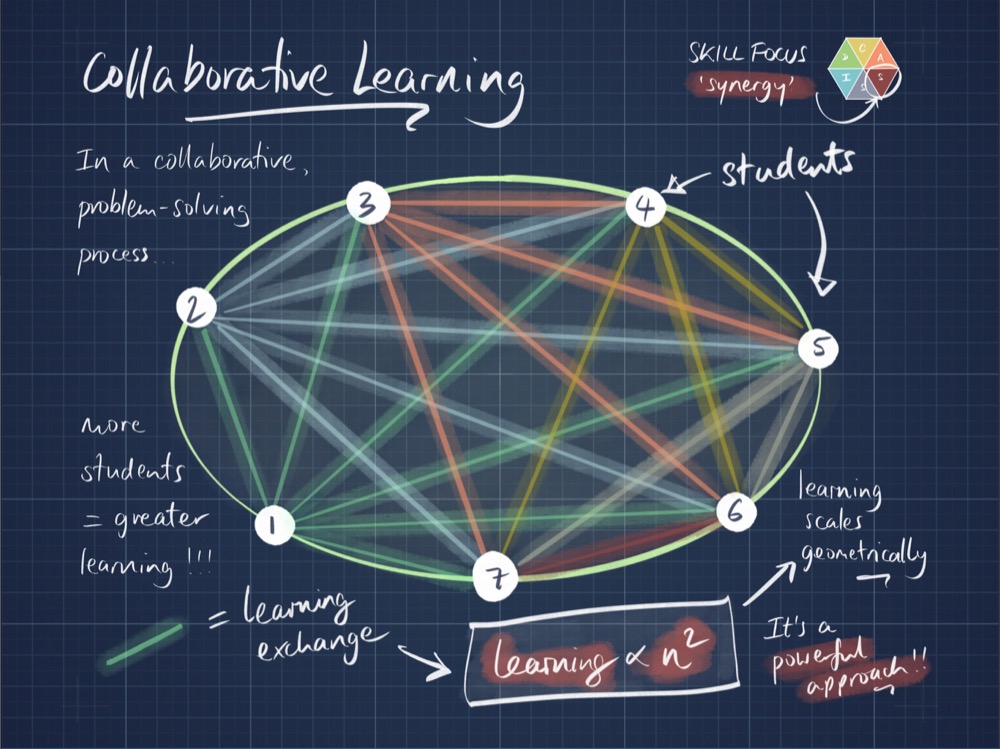 Collaborative Learning
SKILL FOCUS
'synergy'
C
D
A
I
S
S
In a collaborative,
problem-solving
process...
students
3
4
2
5
1
6
7
more
students
= greater
learning !!!
= learning
exchange
learning ∝ n²
learning
scales
geometrically
It's a
powerful
approach!!